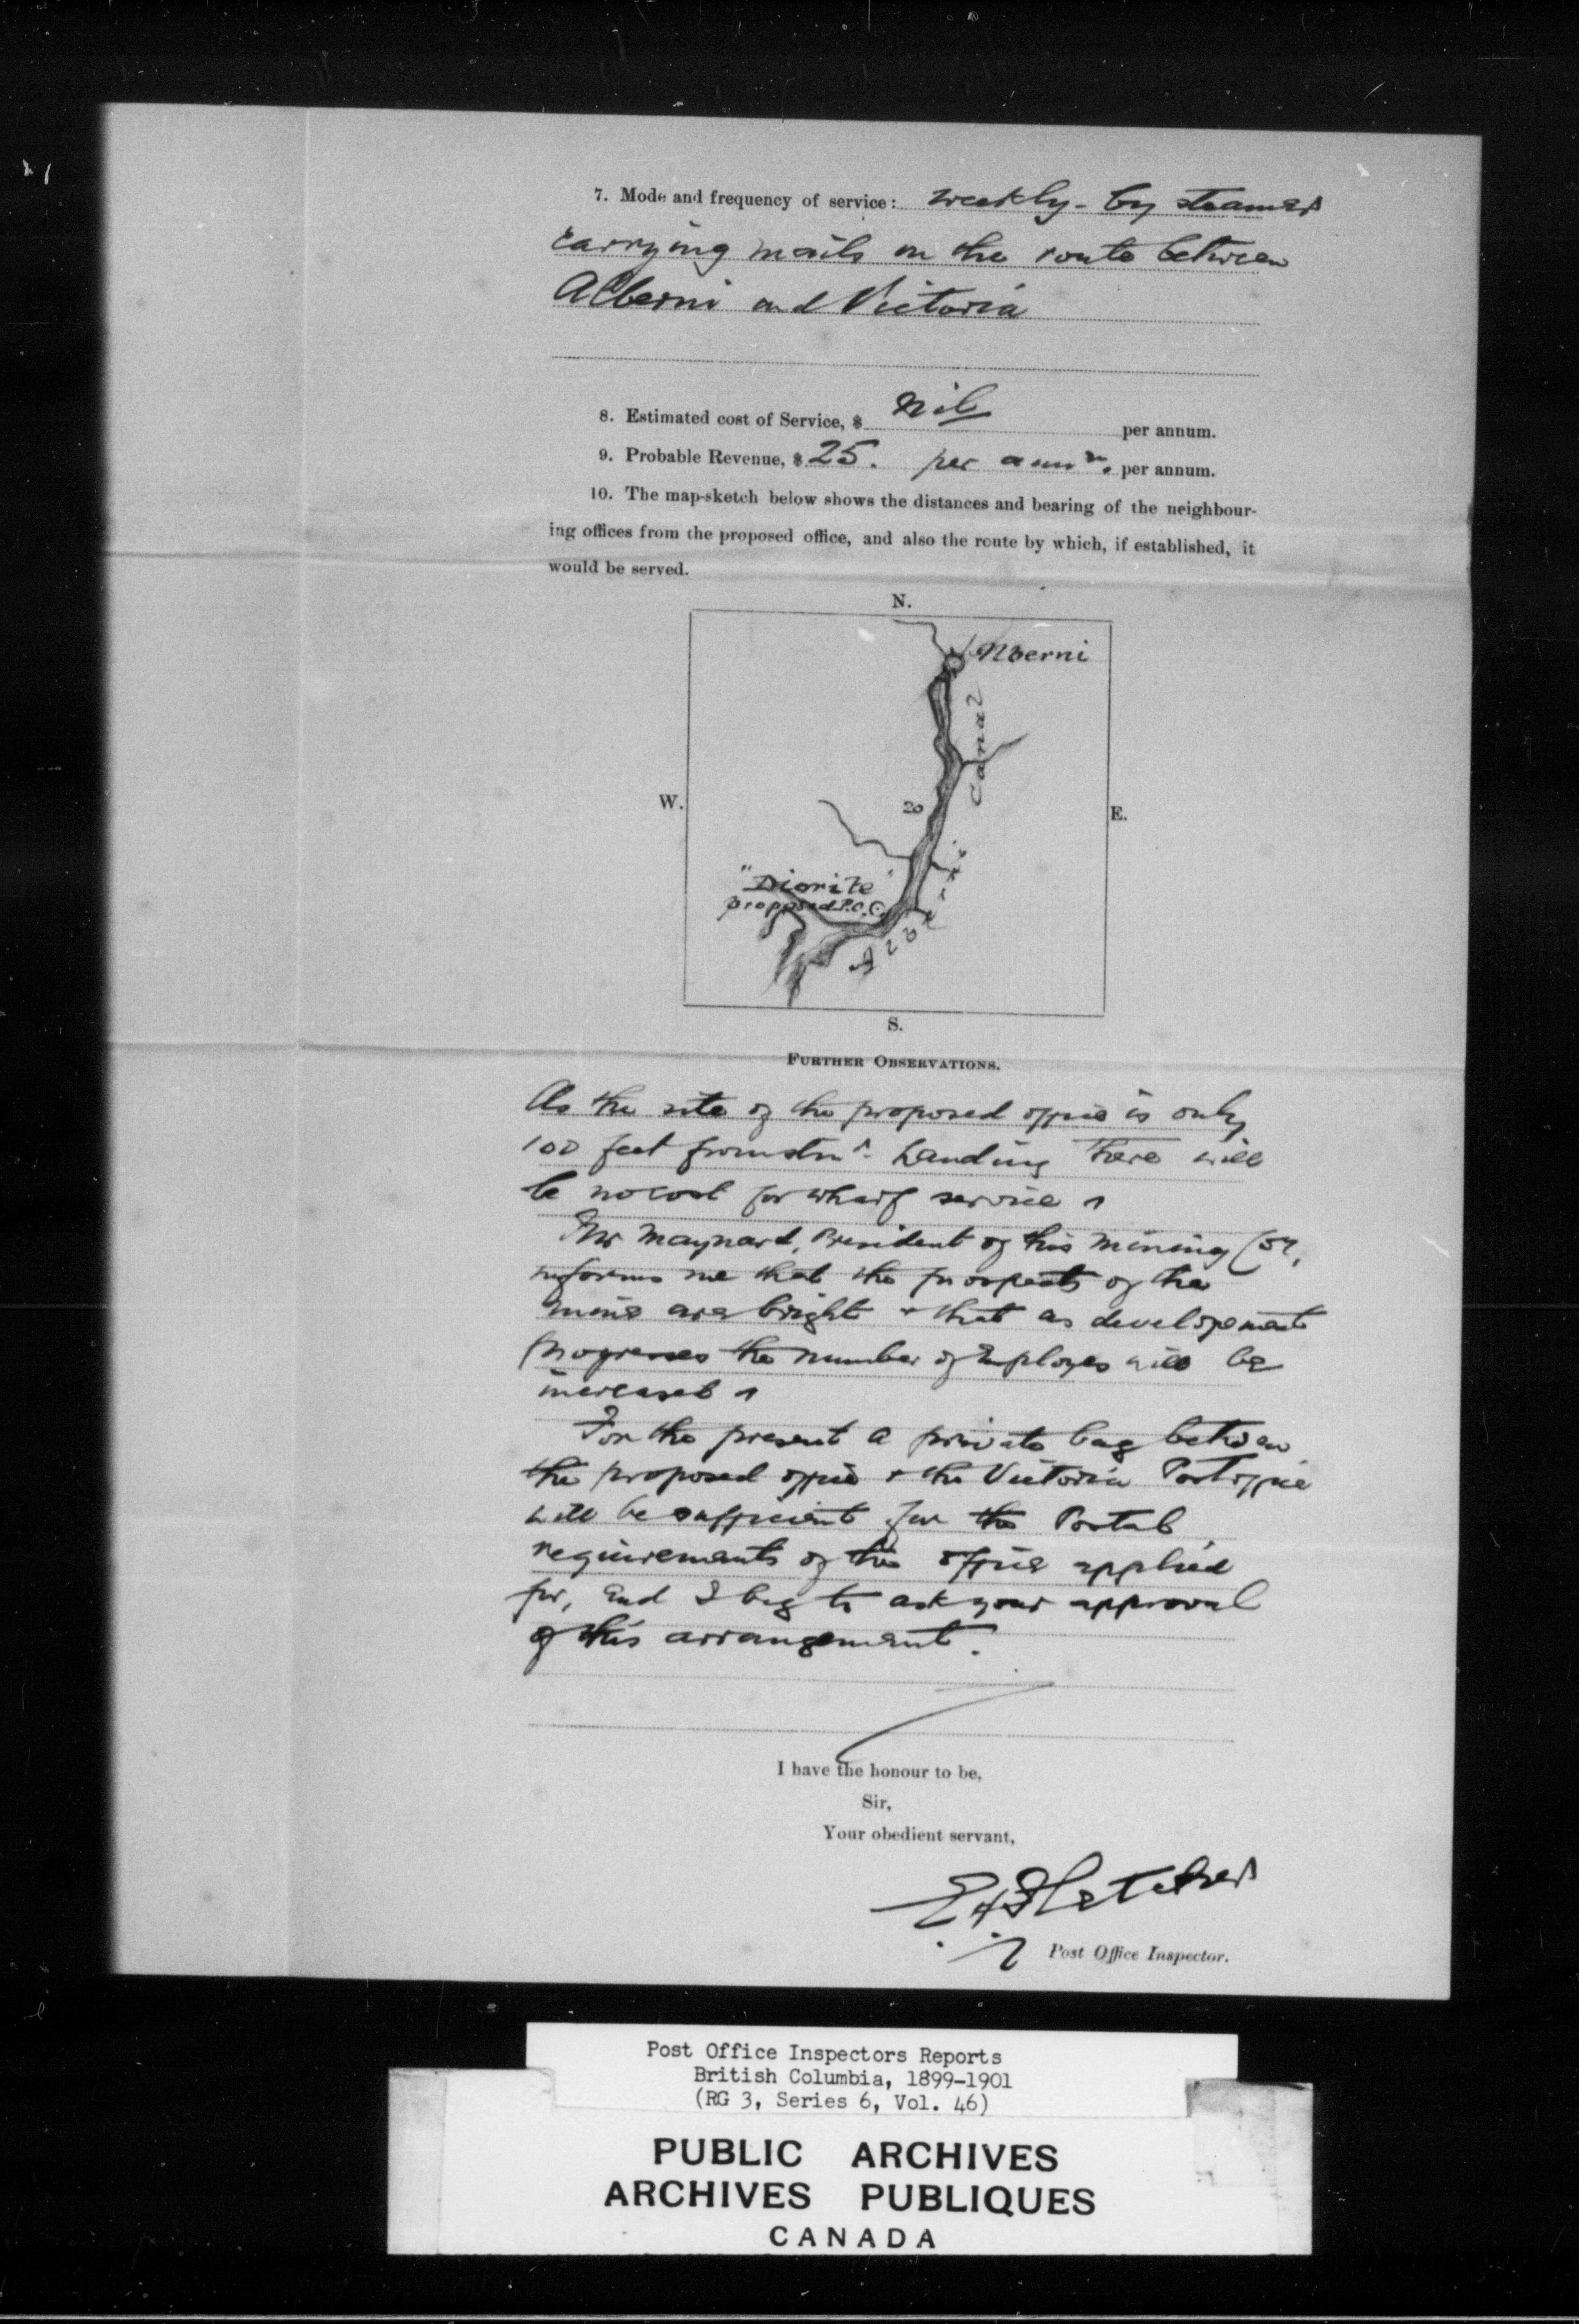 7. Mode and frequency of service: weekly - by steamer
carrying mails on the route between
Alberni and Victoria
8. Estimated cost of Service, $ Nil per annum.
9. Probable Revenue, $ 25. per annm. per annum.
10. The map-sketch below shows the distances and bearing of the neighbour-
ing offices from the proposed office, and also the route by which, if established, it
would be served.
N.
Alberni
Canal
W.
20
E.
"Diorite"
proposed P.O.
Alberni
S.
FURTHER OBSERVATIONS.
As the site of the proposed office is only
100 feet from stmr. Landing there will
be no cost for wharf service
Mr Maynard, President of this Mining Coy,
informs me that the prospects of the
mine are bright & that as developement
progresses the number of Employes will be
increased
For the present a private bag between
the proposed office & the Victoria Post office
will be sufficient for the Postal
requirements of the office applied
for, and I beg to ask your approval
of this arrangement.
I have the honour to be,
Sir,
Your obedient servant,
E H Fletcher
Post Office Inspector.
Post Office Inspectors Reports
British Columbia, 1899-1901
(RG 3, Series 6, Vol. 46)
PUBLIC ARCHIVES
ARCHIVES PUBLIQUES
CANADA